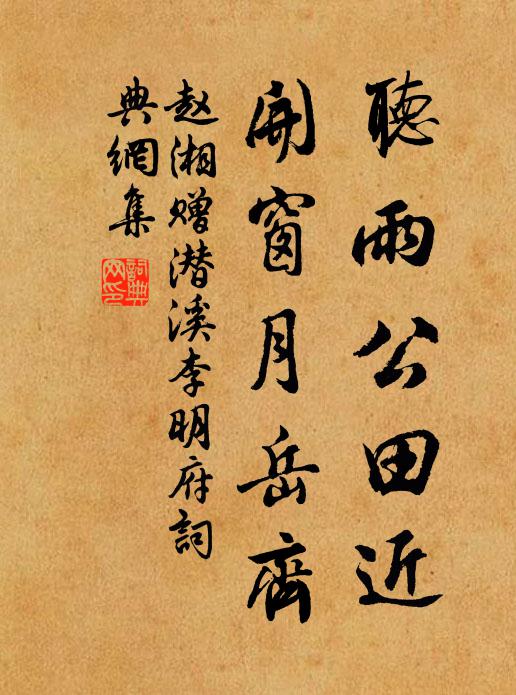 聽雨公田近
開窗月岳齊
赵湘赠潜溪李明府詞
典網集
詞典网印